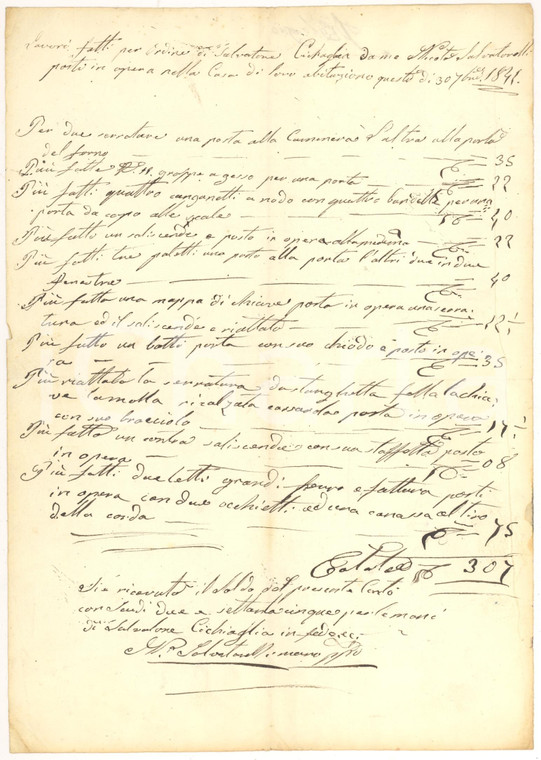 Lavori fatti per Ordine di Salvatore Cichiaglia da me Nicola Salvatorelli
posti in opera nella Casa di loro abitazione questo dì 30 7bre 1841.
Per due serrature una posta alla Cammera e l'altra alla porta
del forno — — — 35
Più fatte N.° 11. grappe a gesso per una porta — 22
Più fatti quattro canganetti a nodo con quattro bandelle per una
porta da capo alle scale — — 40
Più fatto un saliscende e posto in opera alla medema — 22
Più fatti tre paletti uno posto alla porta l'altri due in due
fenestre — — 40
Più fatto una mappa di chiave posta in opera una serra:
tura ed il saliscende e riattato — 12½
Più fatto un batti porta con suo chiodo e posto in ope:
ra — — 35
Più riattato la serratura da stanghetta fatta la chia:
ve la molla ricalzata posta in opera
con suo — 17½
Più fatto un contra saliscende con sua staffetta posto
in opera — — 08
Più fatti due letti grandi ferro e fattura posti
in opera con due occhietti ed una al tiro
della corda — — 75
Totale 307
Si è ricevuto il saldo del presente Conto
con Scudi due e settanta cinque per le mani
di Salvatore Cichiaglia in fede
N. Salvatorelli mano pp̃ria